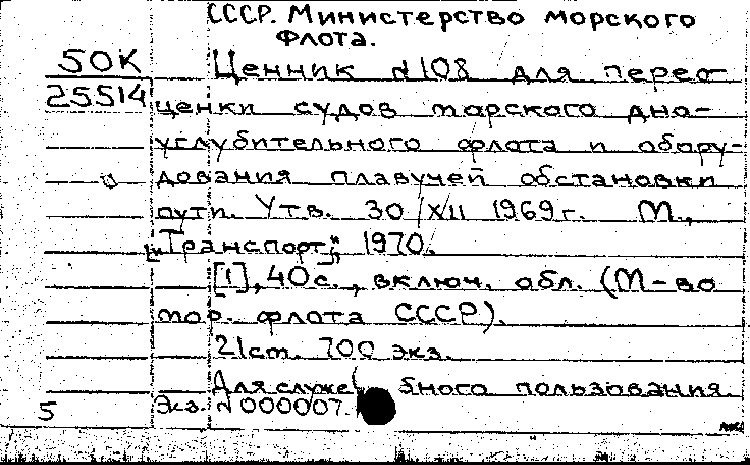 СССР. Министерство морского
флота.
50К
25514
Ценник №108 для перео-
ценки судов морского дно-
углубительного флота и обору-
дования плавучей обстановки
пути. Утв. 30/XII 1969г. М.,
["Транспорт"], 1970.
[1], 40с., включ. обл. (М-во
мор. флота СССР).
21см. 700 экз.
Для служебного пользования.
Экз. №000007.
5